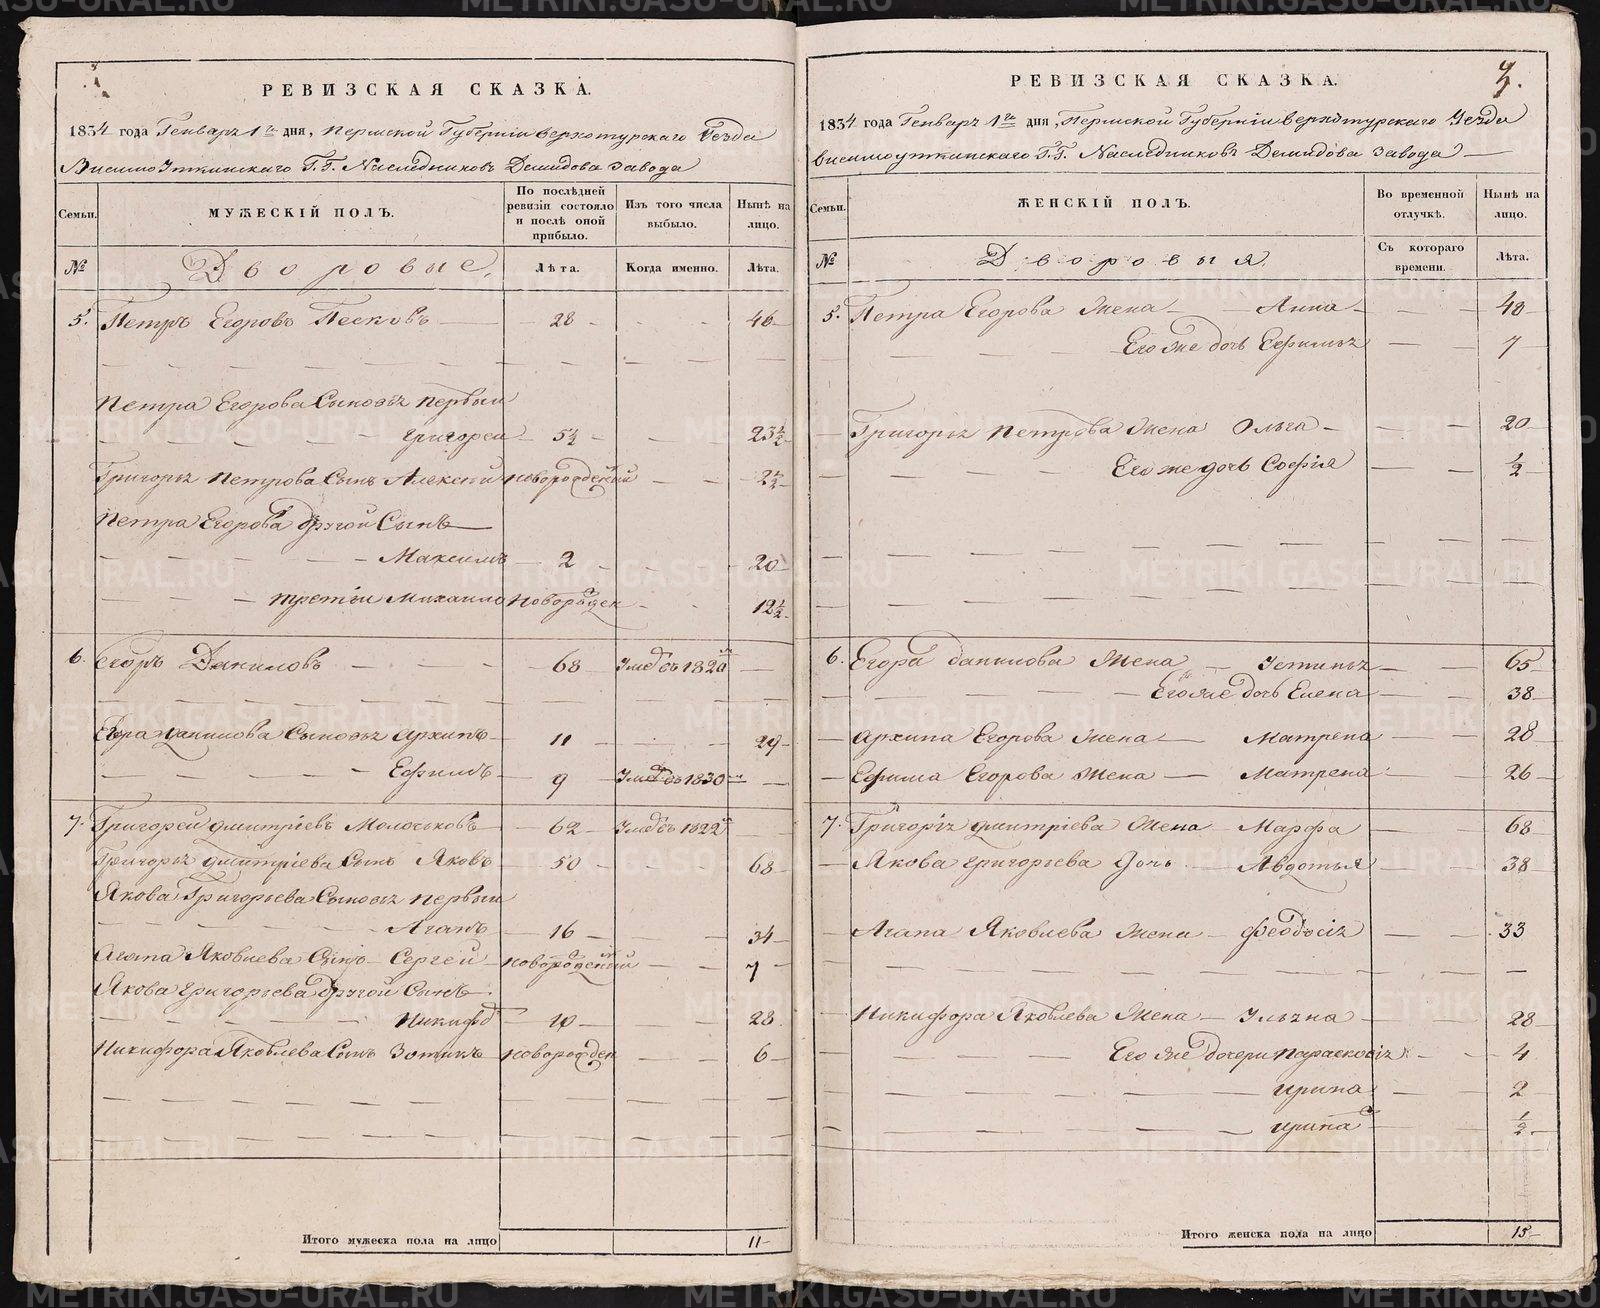 РЕВИЗСКАЯ СКАЗКА.
1834 года Генваря 1го дня, Пермской Губернии Верхотурскаго Уезда
Висимоуткинскаго Г.Г. Наследниковъ Демидова Завода
Семьи.
МУЖЕСКІЙ ПОЛЪ.
По послѣдней ревизіи состояло и послѣ оной прибыло.
Изъ того числа выбыло.
Нынѣ на лицо.
№
Дворовые.
Лѣта.
Когда именно.
Лѣта.
5. Петръ Егоровъ Песковъ 28 46
Петра Егорова Сыновья первый
Григореи 5½ 23½
Григорья Петрова Сынъ Алексей новорожденный 2½
Петра Егорова другой Сынъ
Максимъ 2 20
третій Михаило новорожден 12½
6. Егоръ Даниловъ 68
Егора Данилова Сыновья Архипъ 11 29
Ефимъ 9
7. Григорей Дмитріевъ Молочковъ 62
Григорья Дмитріева Сынъ Яковъ 50 68
Якова Григорьева Сыновья первый
Агапъ 16 34
Агапа Яковлева Сынъ Сергей новорожденный 7
Якова Григорьева другой Сынъ
Никифоръ 10 28
Никифора Яковлева Сынъ Зотикъ новорожден 6
Итого мужеска пола на лицо 11
4.
РЕВИЗСКАЯ СКАЗКА.
1834 года Генваря 1го дня, Пермской Губернии Верхотурскаго Уезда
Висимоуткинскаго Г.Г. Наследниковъ Демидова Завода
Семьи.
ЖЕНСКІЙ ПОЛЪ.
Во временной отлучкѣ.
Нынѣ на лицо.
№
Дворовыя
Съ котораго времени.
Лѣта.
5. Петра Егорова Жена Анна 40
Его же дочь Ефимья 7
Григорья Петрова Жена Ольга 20
Его же дочь Софія ½
6. Егора Данилова Жена Устинья 65
Его же дочь Елена 38
Архипа Егорова Жена Матрена 28
Ефима Егорова Жена Матрена 26
7. Григорія Дмитріева Жена Марфа 68
Якова Григорьева Дочь Авдотья 38
Агапа Яковлева Жена Феодосія 33
Никифора Яковлева Жена Ульяна 28
Его же дочери Парасковія 4
Ирина 2
Ирина ½
Итого женска пола на лицо 15
METRIKI.GASO-URAL.RU